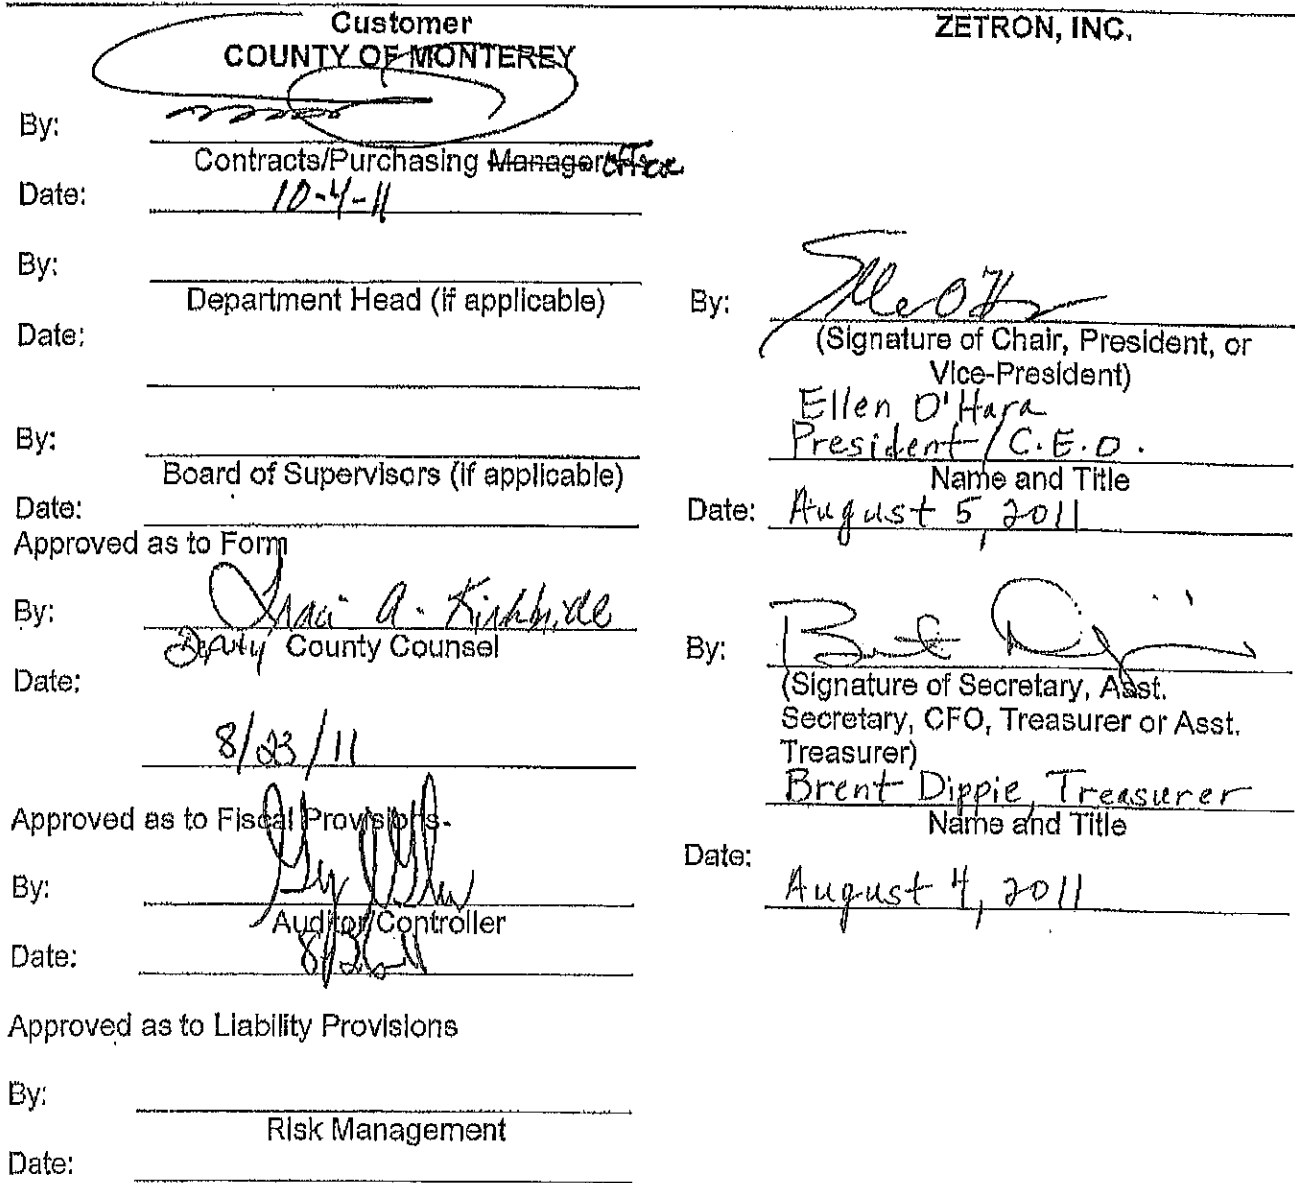 Customer
COUNTY OF MONTEREY
By:
Contracts/Purchasing Manager
Date: 10-4-11
By:
Department Head (if applicable)
Date:
By:
Board of Supervisors (if applicable)
Date:
Approved as to Form
By: Traci A. Kirkbride
Deputy County Counsel
Date:
8/23/11
Approved as to Fiscal Provisions
By:
Auditor/Controller
Date:
Approved as to Liability Provisions
By:
Risk Management
Date:
ZETRON, INC.
By:
(Signature of Chair, President, or
Vice-President)
Ellen O'Hara
President/C.E.O.
Name and Title
Date: August 5, 2011
By:
(Signature of Secretary, Asst.
Secretary, CFO, Treasurer or Asst.
Treasurer)
Brent Dippie, Treasurer
Name and Title
Date:
August 4, 2011